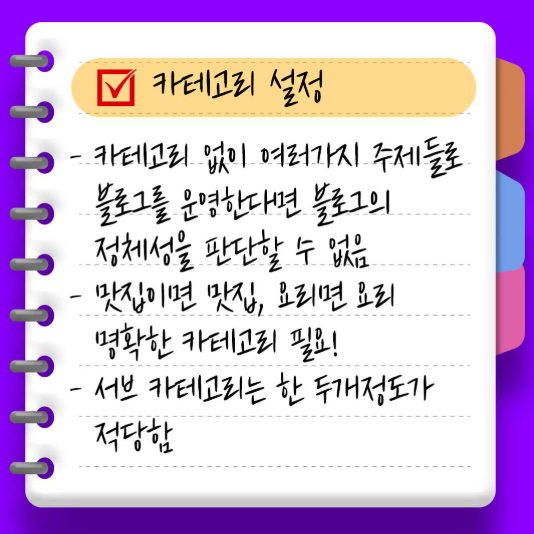 카테고리 설정
- 카테고리 없이 여러가지 주제들로
블로그를 운영한다면 블로그의
정체성을 판단할 수 없음
- 맛집이면 맛집, 요리면 요리
명확한 카테고리 필요!
- 서브 카테고리는 한 두개정도가
적당함